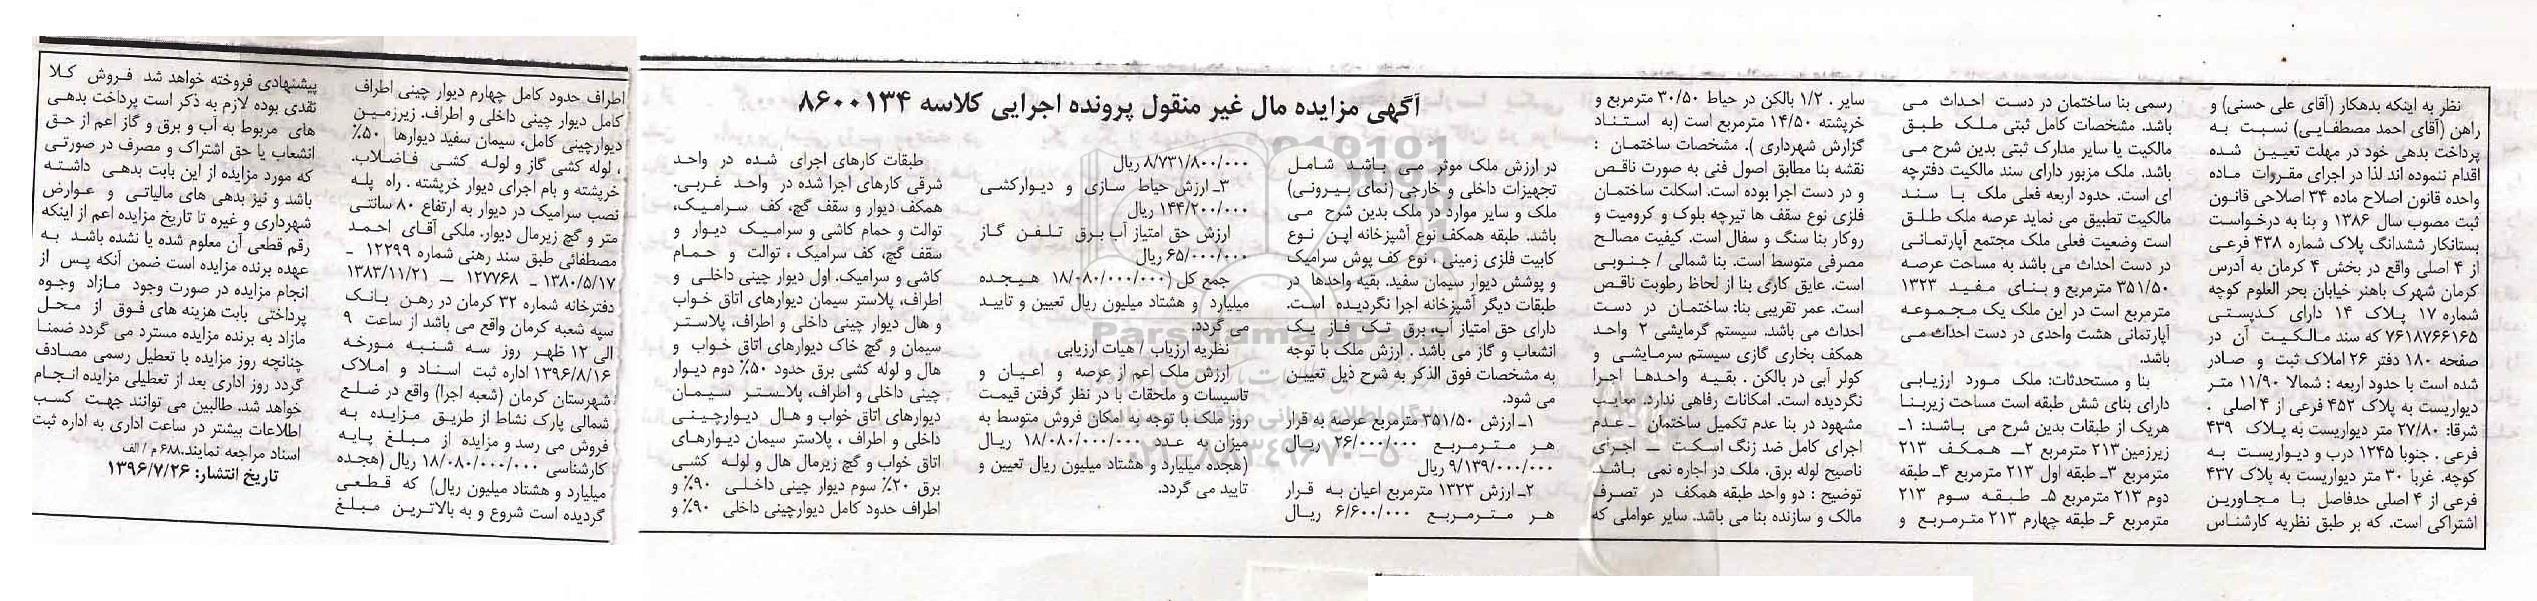 آگهی مزایده مال غیر منقول پرونده اجرایی کلاسه ۸۶۰۰۱۳۴
نظر به اینکه بدهکار (آقای علی حسنی) و
راهن (آقای احمد مصطفایی) نسبت به
پرداخت بدهی خود در مهلت تعیین شده
اقدام ننموده اند لذا در اجرای مقررات ماده
واحده قانون اصلاح ماده ۳۴ اصلاحی قانون
ثبت مصوب سال ۱۳۸۶ و بنا به درخواست
بستانکار ششدانگ پلاک شماره ۴۳۸ فرعی
از ۴ اصلی واقع در بخش ۴ کرمان به آدرس
کرمان شهرک باهنر خیابان بحر العلوم کوچه
شماره ۱۷ پلاک ۱۴ دارای کدپستی
۷۶۱۸۷۶۶۱۶۵ که سند مالکیت آن در
صفحه ۱۸۰ دفتر ۲۶ املاک ثبت و صادر
شده است با حدود اربعه : شمالا ۱۱/۹۰ متر
دیواریست به پلاک ۴۵۲ فرعی از ۴ اصلی .
شرقا: ۲۷/۸۰ متر دیواریست به پلاک ۴۳۹
فرعی . جنوبا ۱۳۴۵ درب و دیواریست به
کوچه. غربا ۳۰ متر دیواریست به پلاک ۴۳۷
فرعی از ۴ اصلی حدفاصل با مجاورین
اشتراکی است. که بر طبق نظریه کارشناس
رسمی بنا ساختمان در دست احداث می
باشد. مشخصات کامل ثبتی ملک طبق
مالکیت یا سایر مدارک ثبتی بدین شرح می
باشد. ملک مزبور دارای سند مالکیت دفترچه
ای است. حدود اربعه فعلی ملک با سند
مالکیت تطبیق می نماید عرصه ملک طلق
است وضعیت فعلی ملک مجتمع آپارتمانی
در دست احداث می باشد به مساحت عرصه
۳۵۱/۵۰ مترمربع و بنای مفید ۱۳۲۳
مترمربع است در این ملک یک مجموعه
آپارتمانی هشت واحدی در دست احداث می
باشد.
بنا و مستحدثات: ملک مورد ارزیابی
دارای بنای شش طبقه است مساحت زیربنا
هریک از طبقات بدین شرح می باشد: ۱ـ
زیرزمین۲۱۳ مترمربع ۲ـ همکف ۲۱۳
مترمربع ۳ـ طبقه اول ۲۱۳ مترمربع ۴ـ طبقه
دوم ۲۱۳ مترمربع ۵ـ طبقه سوم ۲۱۳
مترمربع ۶ـ طبقه چهارم ۲۱۳ مترمربع و
سایر . ۱/۲ بالکن در حیاط ۳۰/۵۰ مترمربع و
خرپشته ۱۴/۵۰ مترمربع است (به استناد
گزارش شهرداری ). مشخصات ساختمان :
نقشه بنا مطابق اصول فنی به صورت ناقص
و در دست اجرا بوده است. اسکلت ساختمان
فلزی نوع سقف ها تیرچه بلوک و کرومیت و
روکار بنا سنگ و سفال است. کیفیت مصالح
مصرفی متوسط است. بنا شمالی / جنوبی
است. عایق کاری بنا از لحاظ رطوبت ناقص
است. عمر تقریبی بنا: ساختمان در دست
احداث می باشد. سیستم گرمایشی ۲ واحد
همکف بخاری گازی سیستم سرمایشی و
کولر آبی در بالکن . بقیه واحدها اجرا
نگردیده است. امکانات رفاهی ندارد. معایب
مشهود در بنا عدم تکمیل ساختمان ـ عدم
اجرای کامل ضد زنگ اسکت ـ اجرای
ناصیح لوله برق. ملک در اجاره نمی باشد.
توضیح : دو واحد طبقه همکف در تصرف
مالک و سازنده بنا می باشد. سایر عواملی که
در ارزش ملک موثر می باشد شامل
تجهیزات داخلی و خارجی (نمای بیرونی)
ملک و سایر موارد در ملک بدین شرح می
باشد. طبقه همکف نوع آشپزخانه اپن نوع
کابیت فلزی زمینی ، نوع کف پوش سرامیک
و پوشش دیوار سیمان سفید. بقیه واحدها در
طبقات دیگر آشپزخانه اجرا نگردیده است.
دارای حق امتیاز آب، برق تک فاز یک
انشعاب و گاز می باشد . ارزش ملک با توجه
به مشخصات فوق الذکر به شرح ذیل تعیین
می شود.
۱ـ ارزش ۳۵۱/۵۰ مترمربع عرصه به قرار
هر مترمربع ۲۶/۰۰۰/۰۰۰ ریال
۹/۱۳۹/۰۰۰/۰۰۰ ریال
۲ـ ارزش ۱۳۲۳ مترمربع اعیان به قرار
هر مترمربع ۶/۶۰۰/۰۰۰ ریال
۸/۷۳۱/۸۰۰/۰۰۰ ریال
۳ـ ارزش حیاط سازی و دیوارکشی
۱۴۴/۲۰۰/۰۰۰ ریال
ارزش حق امتیاز آب برق تلفن گاز
۶۵/۰۰۰/۰۰۰ ریال
جمع کل (۱۸/۰۸۰/۰۰۰/۰۰۰ هیجده
میلیارد و هشتاد میلیون ریال تعیین و تایید
می گردد.
نظریه ارزیاب / هیات ارزیابی
ارزش ملک اعم از عرصه و اعیان و
تاسیسات و ملحقات با در نظر گرفتن قیمت
روز ملک با توجه به امکان فروش متوسط به
میزان به عدد ۱۸/۰۸۰/۰۰۰/۰۰۰ ریال
(هجده میلیارد و هشتاد میلیون ریال تعیین و
تایید می گردد.
طبقات کارهای اجرای شده در واحد
شرقی کارهای اجرا شده در واحد غربی.
همکف دیوار و سقف گچ، کف سرامیک،
توالت و حمام کاشی و سرامیک دیوار و
سقف گچ، کف سرامیک ، توالت و حمام
کاشی و سرامیک. اول دیوار چینی داخلی و
اطراف، پلاستر سیمان دیوارهای اتاق خواب
و هال دیوار چینی داخلی و اطراف، پلاستر
سیمان و گچ خاک دیوارهای اتاق خواب و
هال و لوله کشی برق حدود ۵۰٪ دوم دیوار
چینی داخلی و اطراف، پلاستر سیمان
دیوارهای اتاق خواب و هال دیوارچینی
داخلی و اطراف ، پلاستر سیمان دیوارهای
اتاق خواب و گچ زیرمال هال و لوله کشی
برق ۲۰٪ سوم دیوار چینی داخلی ۹۰٪ و
اطراف حدود کامل دیوارچینی داخلی ۹۰٪ و
اطراف حدود کامل چهارم دیوار چینی اطراف
کامل دیوار چینی داخلی و اطراف. زیرزمین
دیوارچینی کامل، سیمان سفید دیوارها ۵۰٪
، لوله کشی گاز و لوله کشی فاضلاب.
خرپشته و بام اجرای دیوار خرپشته . راه پله
نصب سرامیک در دیوار به ارتفاع ۸۰ سانتی
متر و گچ زیرمال دیوار. ملکی آقای احمد
مصطفائی طبق سند رهنی شماره ۱۲۲۹۹ ـ
۱۳۸۰/۵/۱۷ ـ ۱۲۷۷۶۸ ـ ۱۳۸۳/۱۱/۲۱
دفترخانه شماره ۳۲ کرمان در رهن بانک
سپه شعبه کرمان واقع می باشد از ساعت ۹
الی ۱۲ ظهر روز سه شنبه مورخه
۱۳۹۶/۸/۱۶ اداره ثبت اسناد و املاک
شهرستان کرمان (شعبه اجرا) واقع در ضلع
شمالی پارک نشاط از طریق مزایده به
فروش می رسد و مزایده از مبلغ پایه
کارشناسی ۱۸/۰۸۰/۰۰۰/۰۰۰ ریال (هجده
میلیارد و هشتاد میلیون ریال) که قطعی
گردیده است شروع و به بالاترین مبلغ
پیشنهادی فروخته خواهد شد فروش کلا
نقدی بوده لازم به ذکر است پرداخت بدهی
های مربوط به آب و برق و گاز اعم از حق
انشعاب یا حق اشتراک و مصرف در صورتی
که مورد مزایده از این بابت بدهی داشته
باشد و نیز بدهی های مالیاتی و عوارض
شهرداری و غیره تا تاریخ مزایده اعم از اینکه
رقم قطعی آن معلوم شده یا نشده باشد به
عهده برنده مزایده است ضمن آنکه پس از
انجام مزایده در صورت وجود مازاد وجوه
پرداختی بابت هزینه های فوق از محل
مازاد به برنده مزایده مسترد می گردد ضمنا
چنانچه روز مزایده با تعطیل رسمی مصادف
گردد روز اداری بعد از تعطیلی مزایده انجام
خواهد شد. طالبین می توانند جهت کسب
اطلاعات بیشتر در ساعت اداری به اداره ثبت
اسناد مراجعه نمایند.۶۸۸ م / الف
تاریخ انتشار: ۱۳۹۶/۷/۲۶